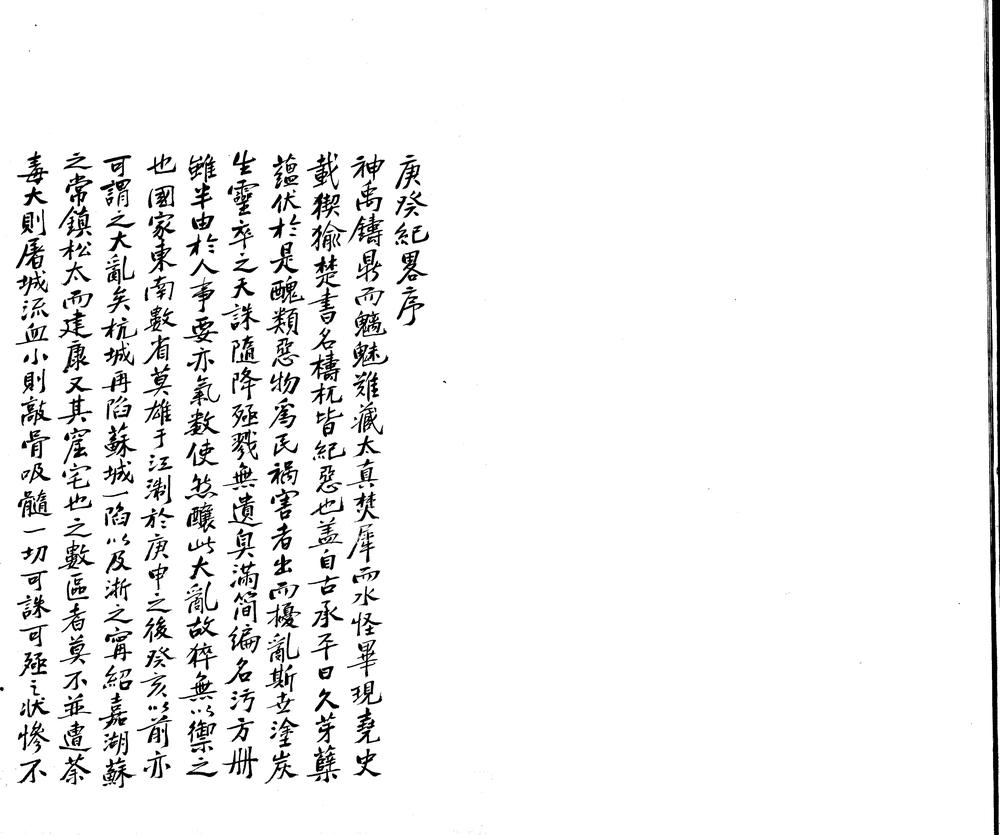 庚癸紀畧序
神禹鑄鼎而魑魅難藏太真焚犀而水怪畢現堯史
載猰㺄楚書名檮杌皆紀惡也盖自古承平日久芽蘖
蘊伏於是醜類惡物爲民禍害者出而擾亂斯世塗炭
生靈卒之天誅隨降殛戮無遺臭滿簡編名污方册
雖半由於人事要亦氣数使然釀此大亂故猝無以禦之
也國家東南數省莫雄于江淛於庚申之後癸亥以前亦
可謂之大亂矣杭城再陷蘇城一陷以及浙之甯紹嘉湖蘇
之常鎮松太而建康又其窟宅也之數區者莫不並遭荼
毒大則屠城流血小則敲骨吸髓一切可誅可殛之狀慘不